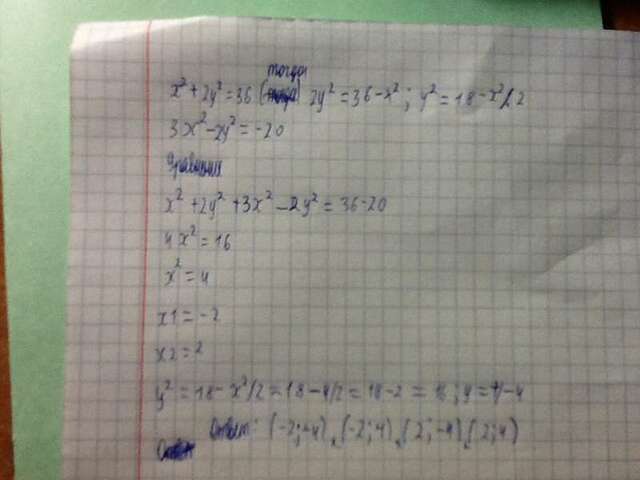 x² + 2y² = 36 ( тогда 2y² = 36 - x² ; y² = 18 - x²/2
3x² - 2y² = -20
x² + 2y² + 3x² - 2y² = 36 - 20
4x² = 16
x² = 4
x1 = -2
x2 = 2
y² = 18 - x²/2 = 18 - 4/2 = 18 - 2 = 16 ; y =
Ответ: (-2; -4), (-2; 4), (2; -4), (2; 4)